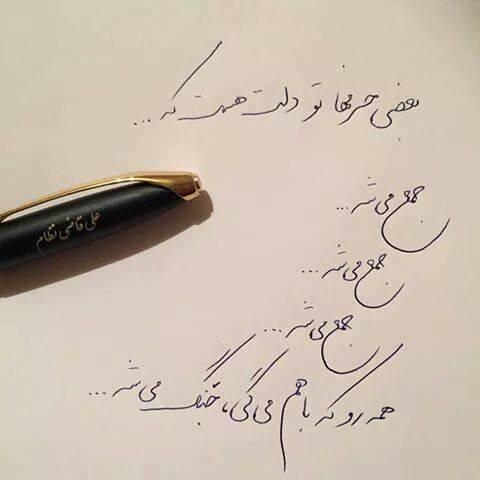 بعضی حرفها تو دلت هست که...
جمع می شه...
جمع می شه...
جمع می شه...
همه رو که با هم می گی، جنگ می شه...
علی قاضی نظام